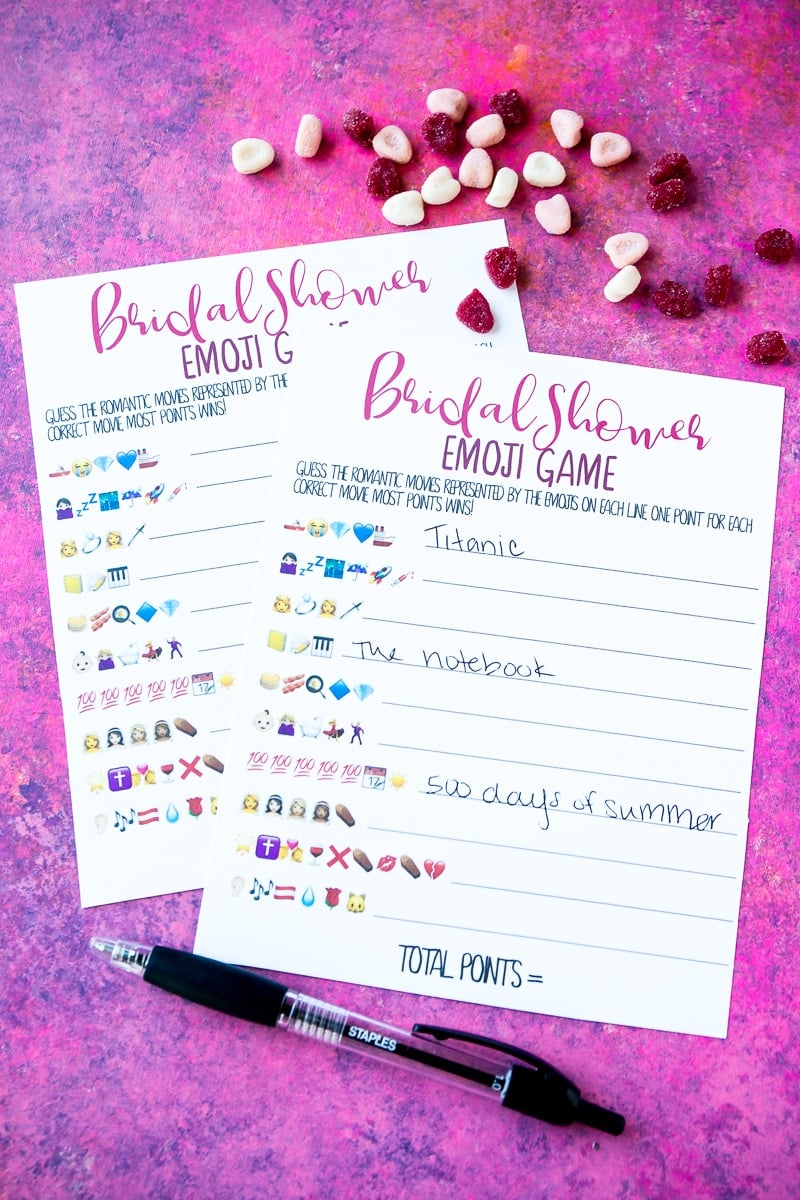 Bridal Shower
EMOJI G
GUESS THE ROMANTIC MOVIES REPRESENTED BY THE
CORRECT MOVIE MOST POINTS WINS!
zzZ
100 100 100 100 100 17
Bridal Shower
EMOJI GAME
GUESS THE ROMANTIC MOVIES REPRESENTED BY THE EMOJIS ON EACH LINE ONE POINT FOR EACH
CORRECT MOVIE MOST POINTS WINS!
Titanic
zzZ
The notebook
100 100 100 100 100 17 500 days of summer
TOTAL POINTS =
STAPLES 1.0